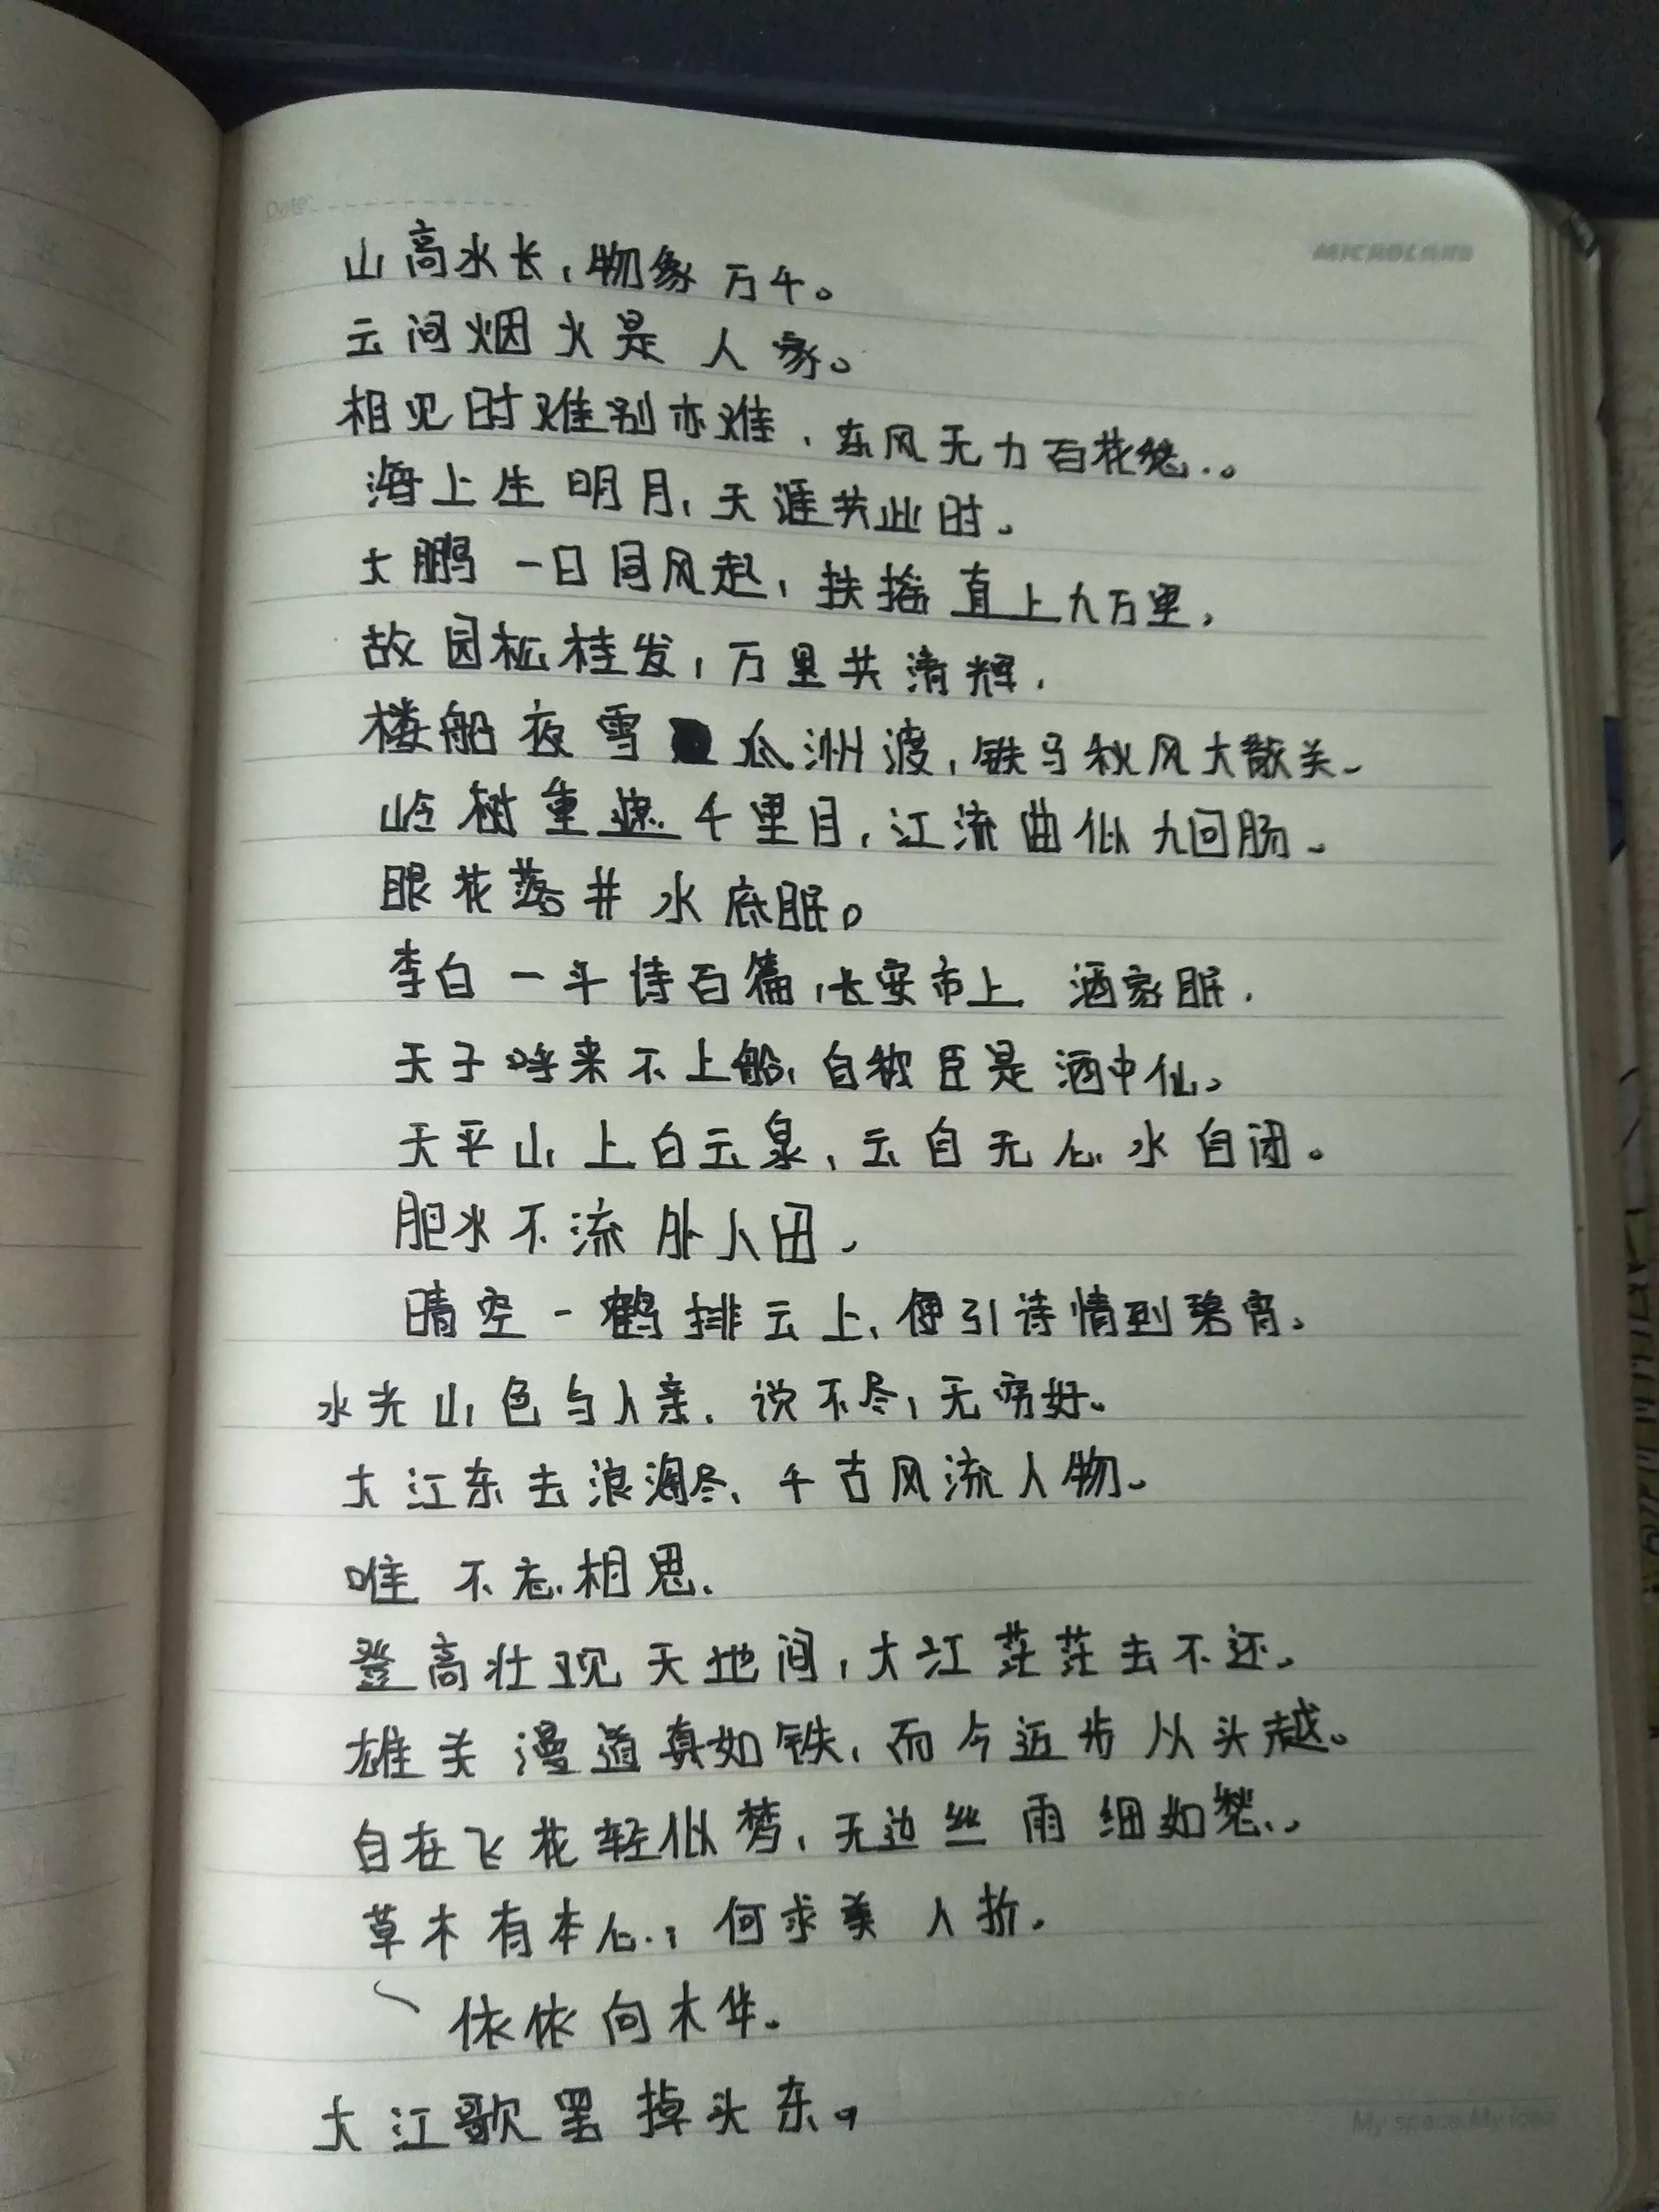 Date:
MICROLAND
山高水长，物象万千。
云间烟火是人家。
相见时难别亦难，东风无力百花愁。
海上生明月，天涯共此时。
大鹏一日同风起，扶摇直上九万里，
故园松桂发，万里共清辉．
楼船夜雪瓜洲渡，铁马秋风大散关。
岭树重遮千里目，江流曲似九回肠。
眼花落井水底眠。
李白一斗诗百篇，长安市上酒家眠．
天子呼来不上船，自称臣是酒中仙。
天平山上白云泉，云自无心水自闭。
肥水不流外人田。
晴空一鹤排云上，便引诗情到碧宵。
水光山色与人亲，说不尽，无穷好。
大江东去浪淘尽，千古风流人物。
唯不忘相思．
登高壮观天地间，大江茫茫去不还。
雄关漫道真如铁，而今迈步从头越。
自在飞花轻似梦，无边丝雨细如愁。
草木有本心，何求美人折．
依依向木华。
大江歌罢掉头东。